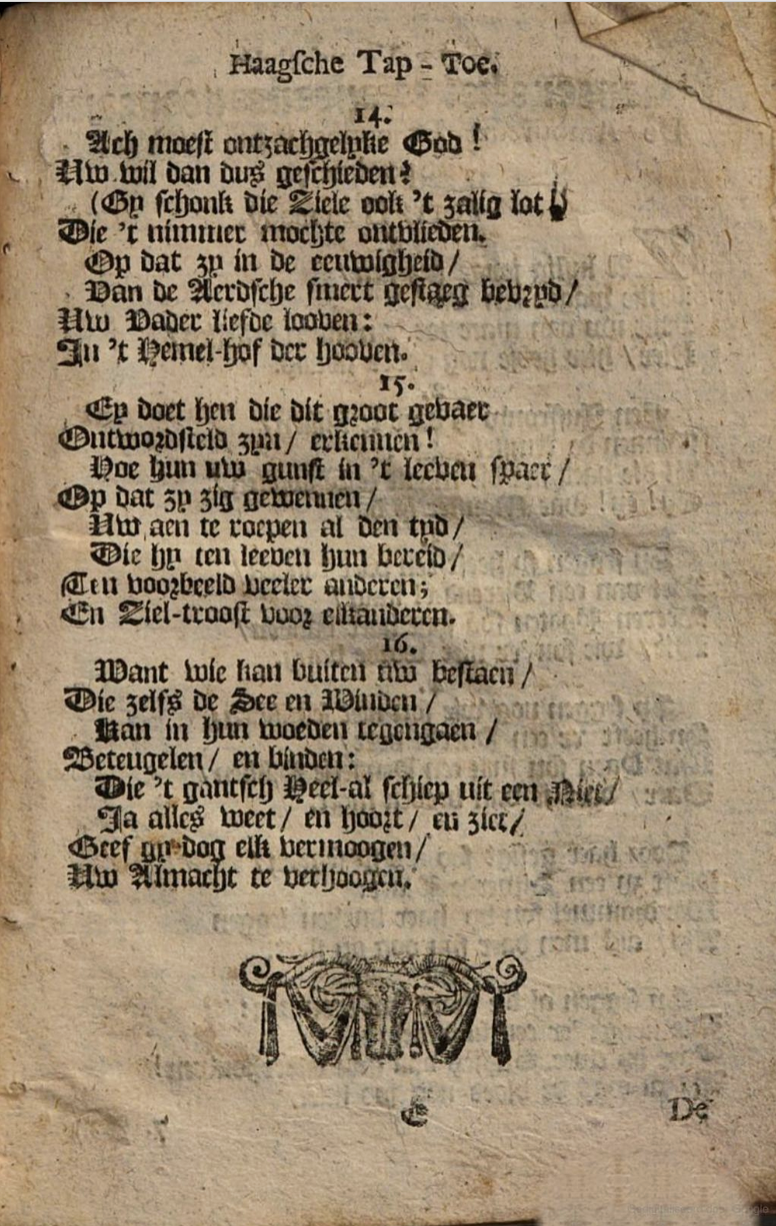 Haagſche Tap-Toe.
14.
Ach moest ontzachgelyke God!
Uw wil dan dus geschieden?
(Gy schonk die Ziele ook 't zalig lot)
Die 't nimmer mochte ontvlieden.
Op dat zy in de eeuwigheid/
Van de Aerdsche smert gestaeg bevryd/
Uw Vader liefde looven:
In 't Hemel-hof der hooven.
15.
Ey doet hen die dit groot gevaer
Ontwordsteld zyn/ erkennen!
Hoe hun uw gunst in 't leeven spaer/
Op dat zy zig gewennen/
Uw aen te roepen al den tyd/
Die hy ten leeven hun bereid/
Ten voorbeeld veeler anderen;
En Ziel-troost voor elkanderen.
16.
Want wie kan buiten uw bestaen/
Die zelfs de See en Winden/
Kan in hun woeden tegengaen/
Beteugelen/ en binden:
Die 't gantsch Heel-al schiep uit een Niet/
Ja alles weet/ en hoort/ en ziet/
Geef gy dog elk vermoogen/
Uw Almacht te verhoogen.
E
De